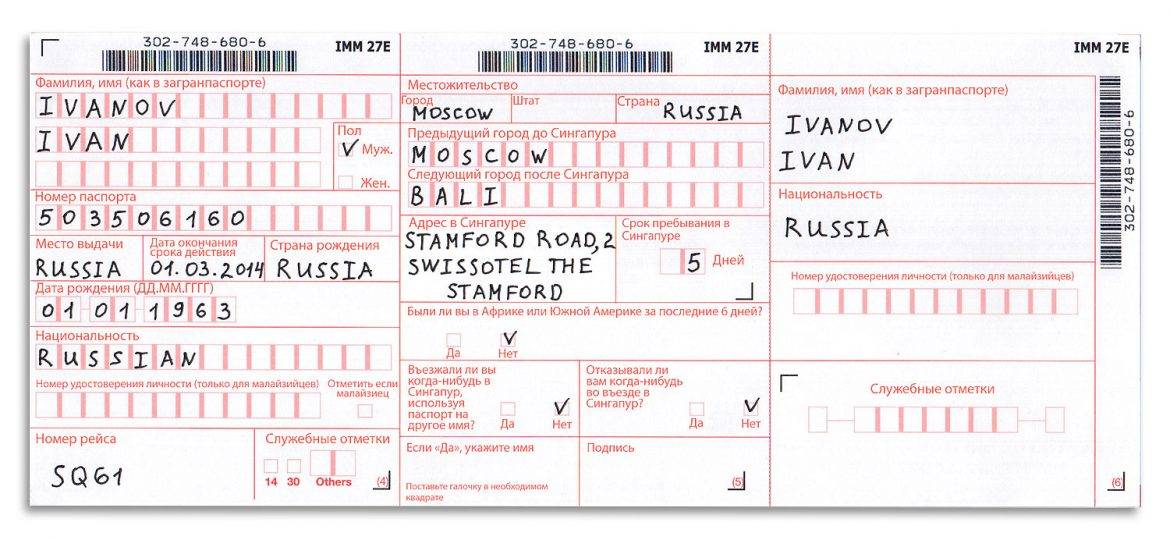 302-748-680-6
IMM 27E
Фамилия, имя (как в загранпаспорте)
IVANOV
IVAN
Пол
✓ Муж.
Жен.
Номер паспорта
503506160
Место выдачи
RUSSIA
Дата окончания
срока действия
01.03.2014
Страна рождения
RUSSIA
Дата рождения (ДД.ММ.ГГГГ)
01 01 1963
Национальность
RUSSIAN
Номер удостоверения личности (только для малайзийцев)
Отметить если
малайзиец
Номер рейса
SQ61
Служебные отметки
14 30 Others
(4)
302-748-680-6
IMM 27E
Местожительство
Город
MOSCOW
Штат
Страна
RUSSIA
Предыдущий город до Сингапура
MOSCOW
Следующий город после Сингапура
BALI
Адрес в Сингапуре
STAMFORD ROAD,2
SWISSOTEL THE
STAMFORD
Срок пребывания в
Сингапуре
5 Дней
Были ли вы в Африке или Южной Америке за последние 6 дней?
Да
✓ Нет
Въезжали ли вы
когда-нибудь в
Сингапур,
используя
паспорт на
другое имя?
Да
✓ Нет
Отказывали ли
вам когда-нибудь
во въезде в
Сингапур?
Да
✓ Нет
Если «Да», укажите имя
Поставьте галочку в необходимом
квадрате
Подпись
(5)
IMM 27E
Фамилия, имя (как в загранпаспорте)
IVANOV
IVAN
Национальность
RUSSIA
Номер удостоверения личности (только для малайзийцев)
Служебные отметки
302-748-680-6
(6)